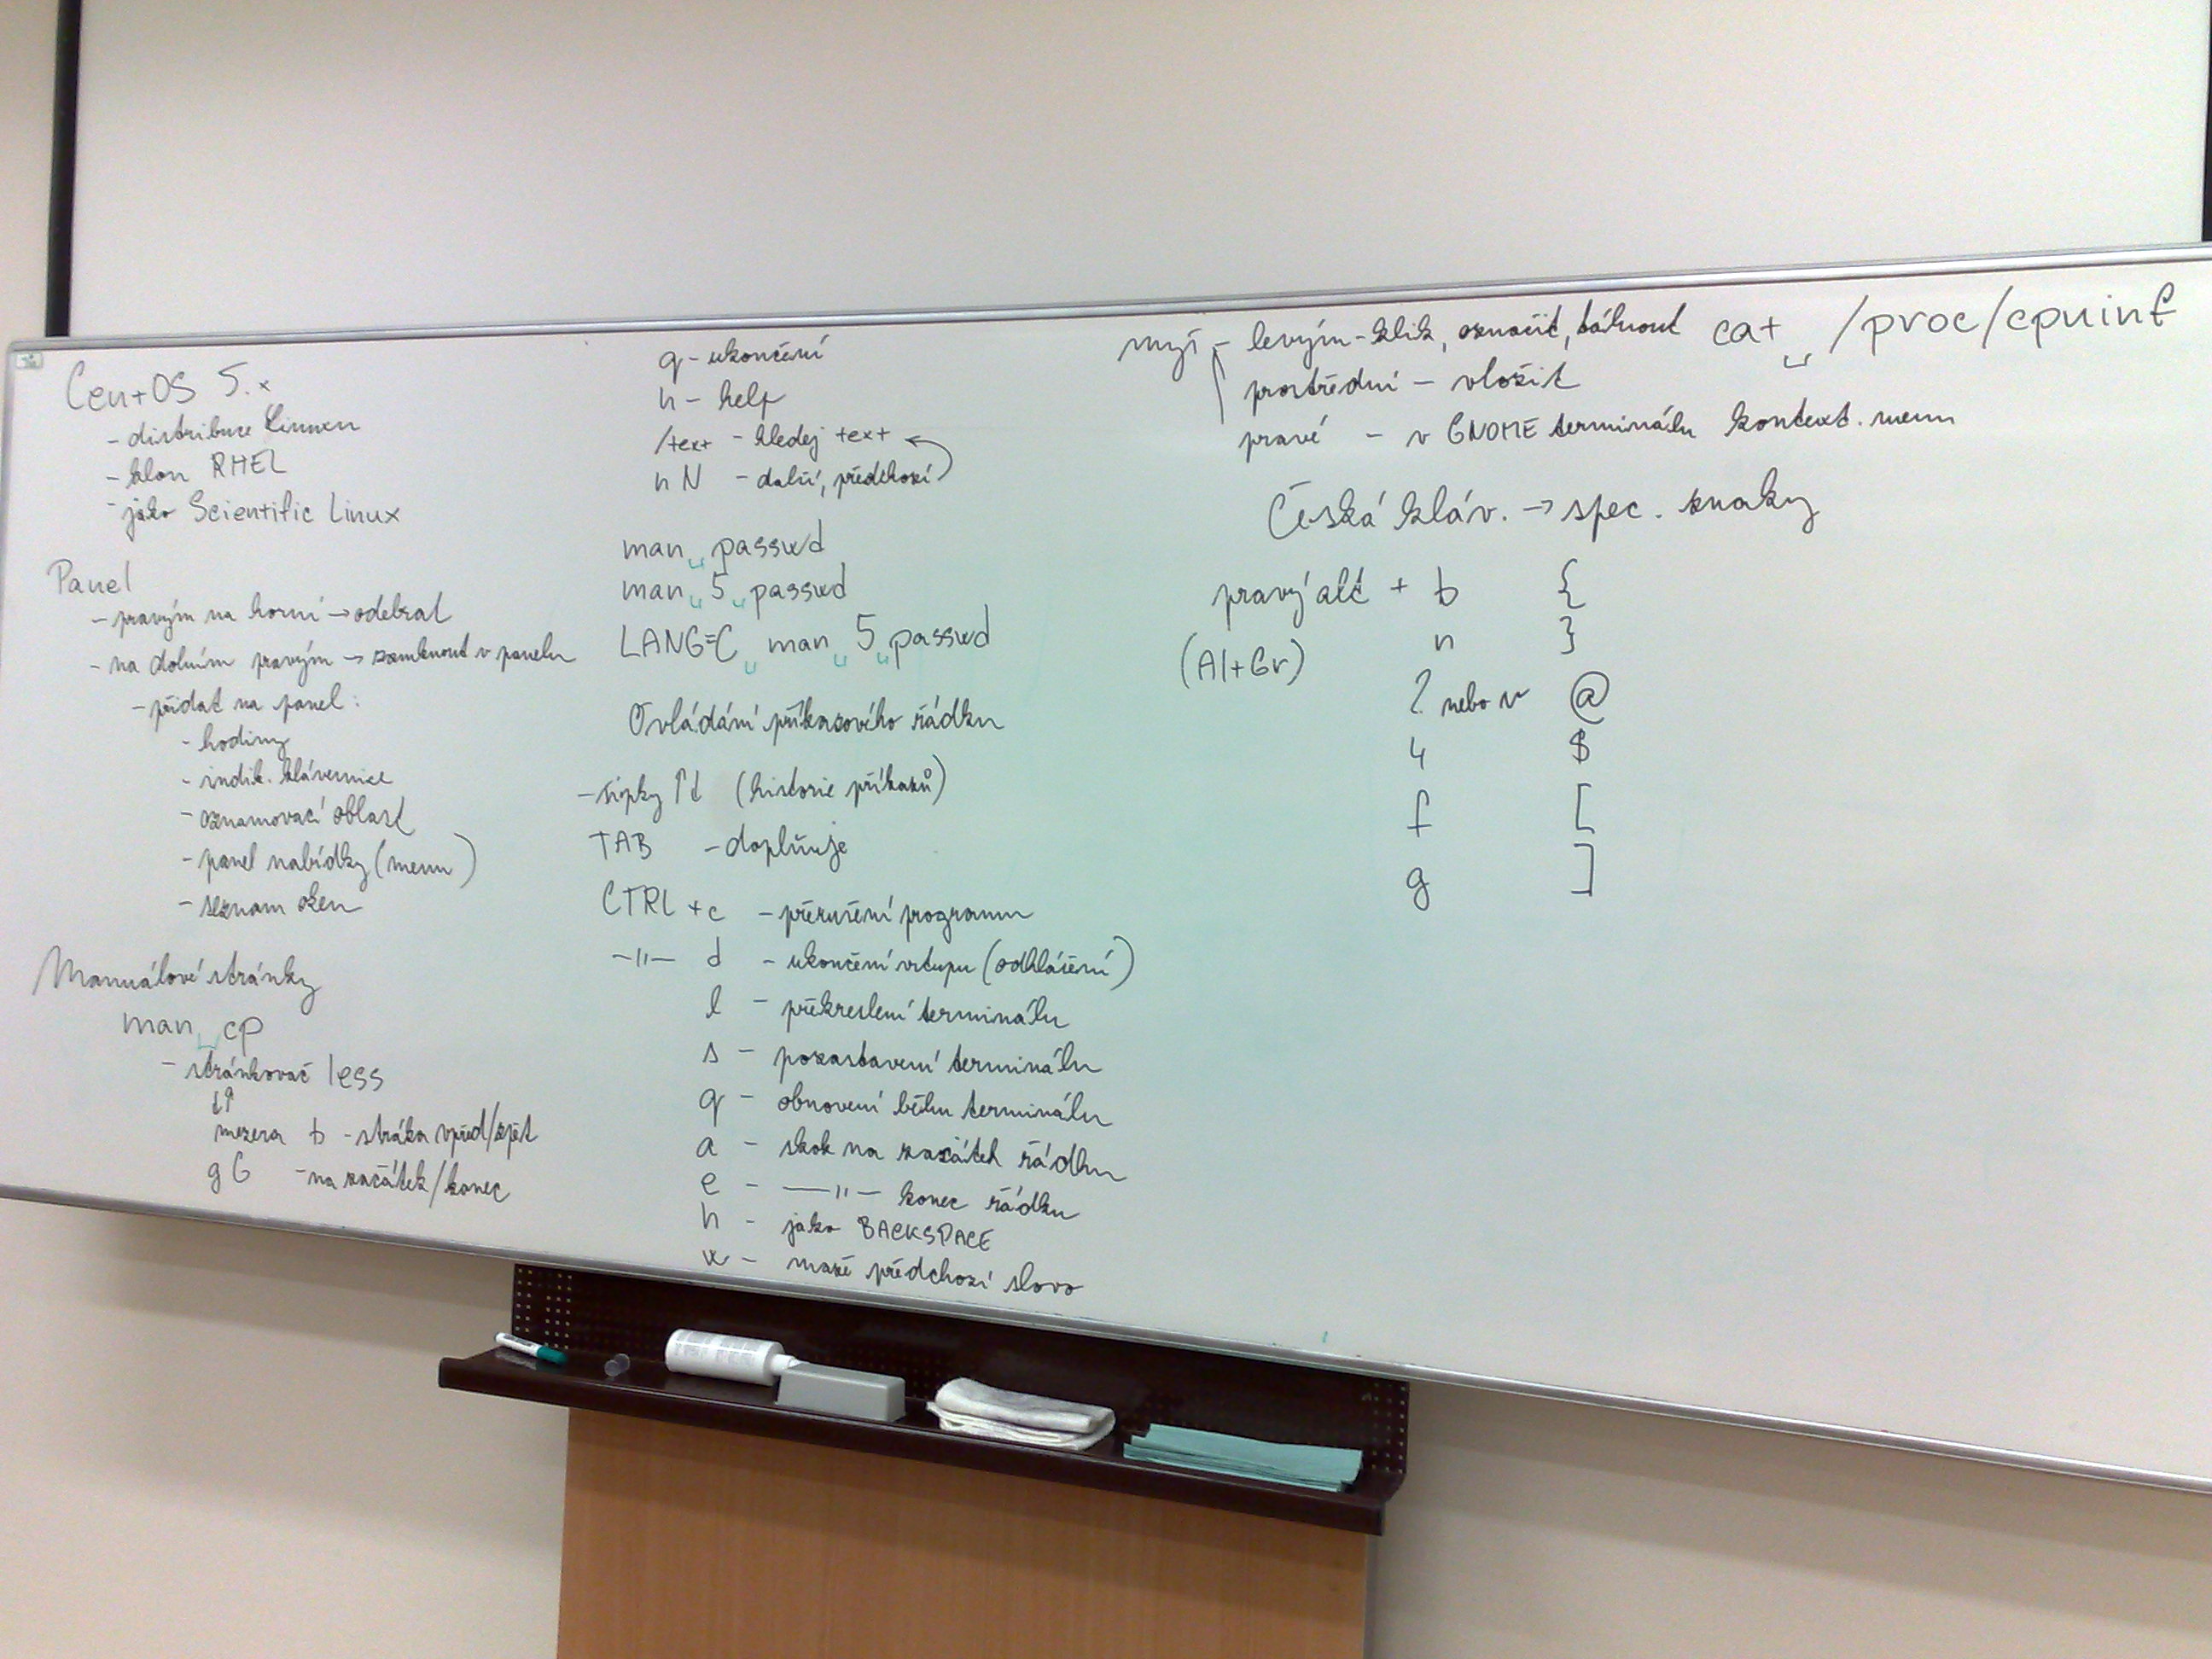 CentOS 5.x
- distribuce Linuxu
- klon RHEL
- jako Scientific Linux
Panel
- pravým na horní → odebrat
- na dolním pravým → zamknout v panelu
- přidat na panel:
- hodiny
- indik. klávesnice
- oznamovací oblast
- panel nabídky (menu)
- seznam oken
Manuálové stránky
man␣cp
- stránkovač less
↓↑
mezera b - stráka vpřed/zpět
g G - na začátek/konec
q - ukončení
h - help
/text - hledej text
n N - další, předchozí
man␣passwd
man␣5␣passwd
LANG=C␣man␣5␣passwd
Ovládání příkazového řádku
- šipky ↑↓ (historie příkazů)
TAB - doplňuje
CTRL + c - přerušení programu
-"- d - ukončení vstupu (odhlášení)
l - překreslení terminálu
s - pozastavení terminálu
q - obnovení běhu terminálu
a - skok na začátek řádku
e - -"- konec řádku
h - jako BACKSPACE
w - maže předchozí slovo
myš - levým - klik, označit, táhnout
prostřední - vložit
pravé - v GNOME terminálu kontext. menu
cat␣/proc/cpuinf
Česká kláv. → spec. znaky
pravý alt + b {
(Alt Gr) n }
2 nebo v @
4 $
f [
g ]